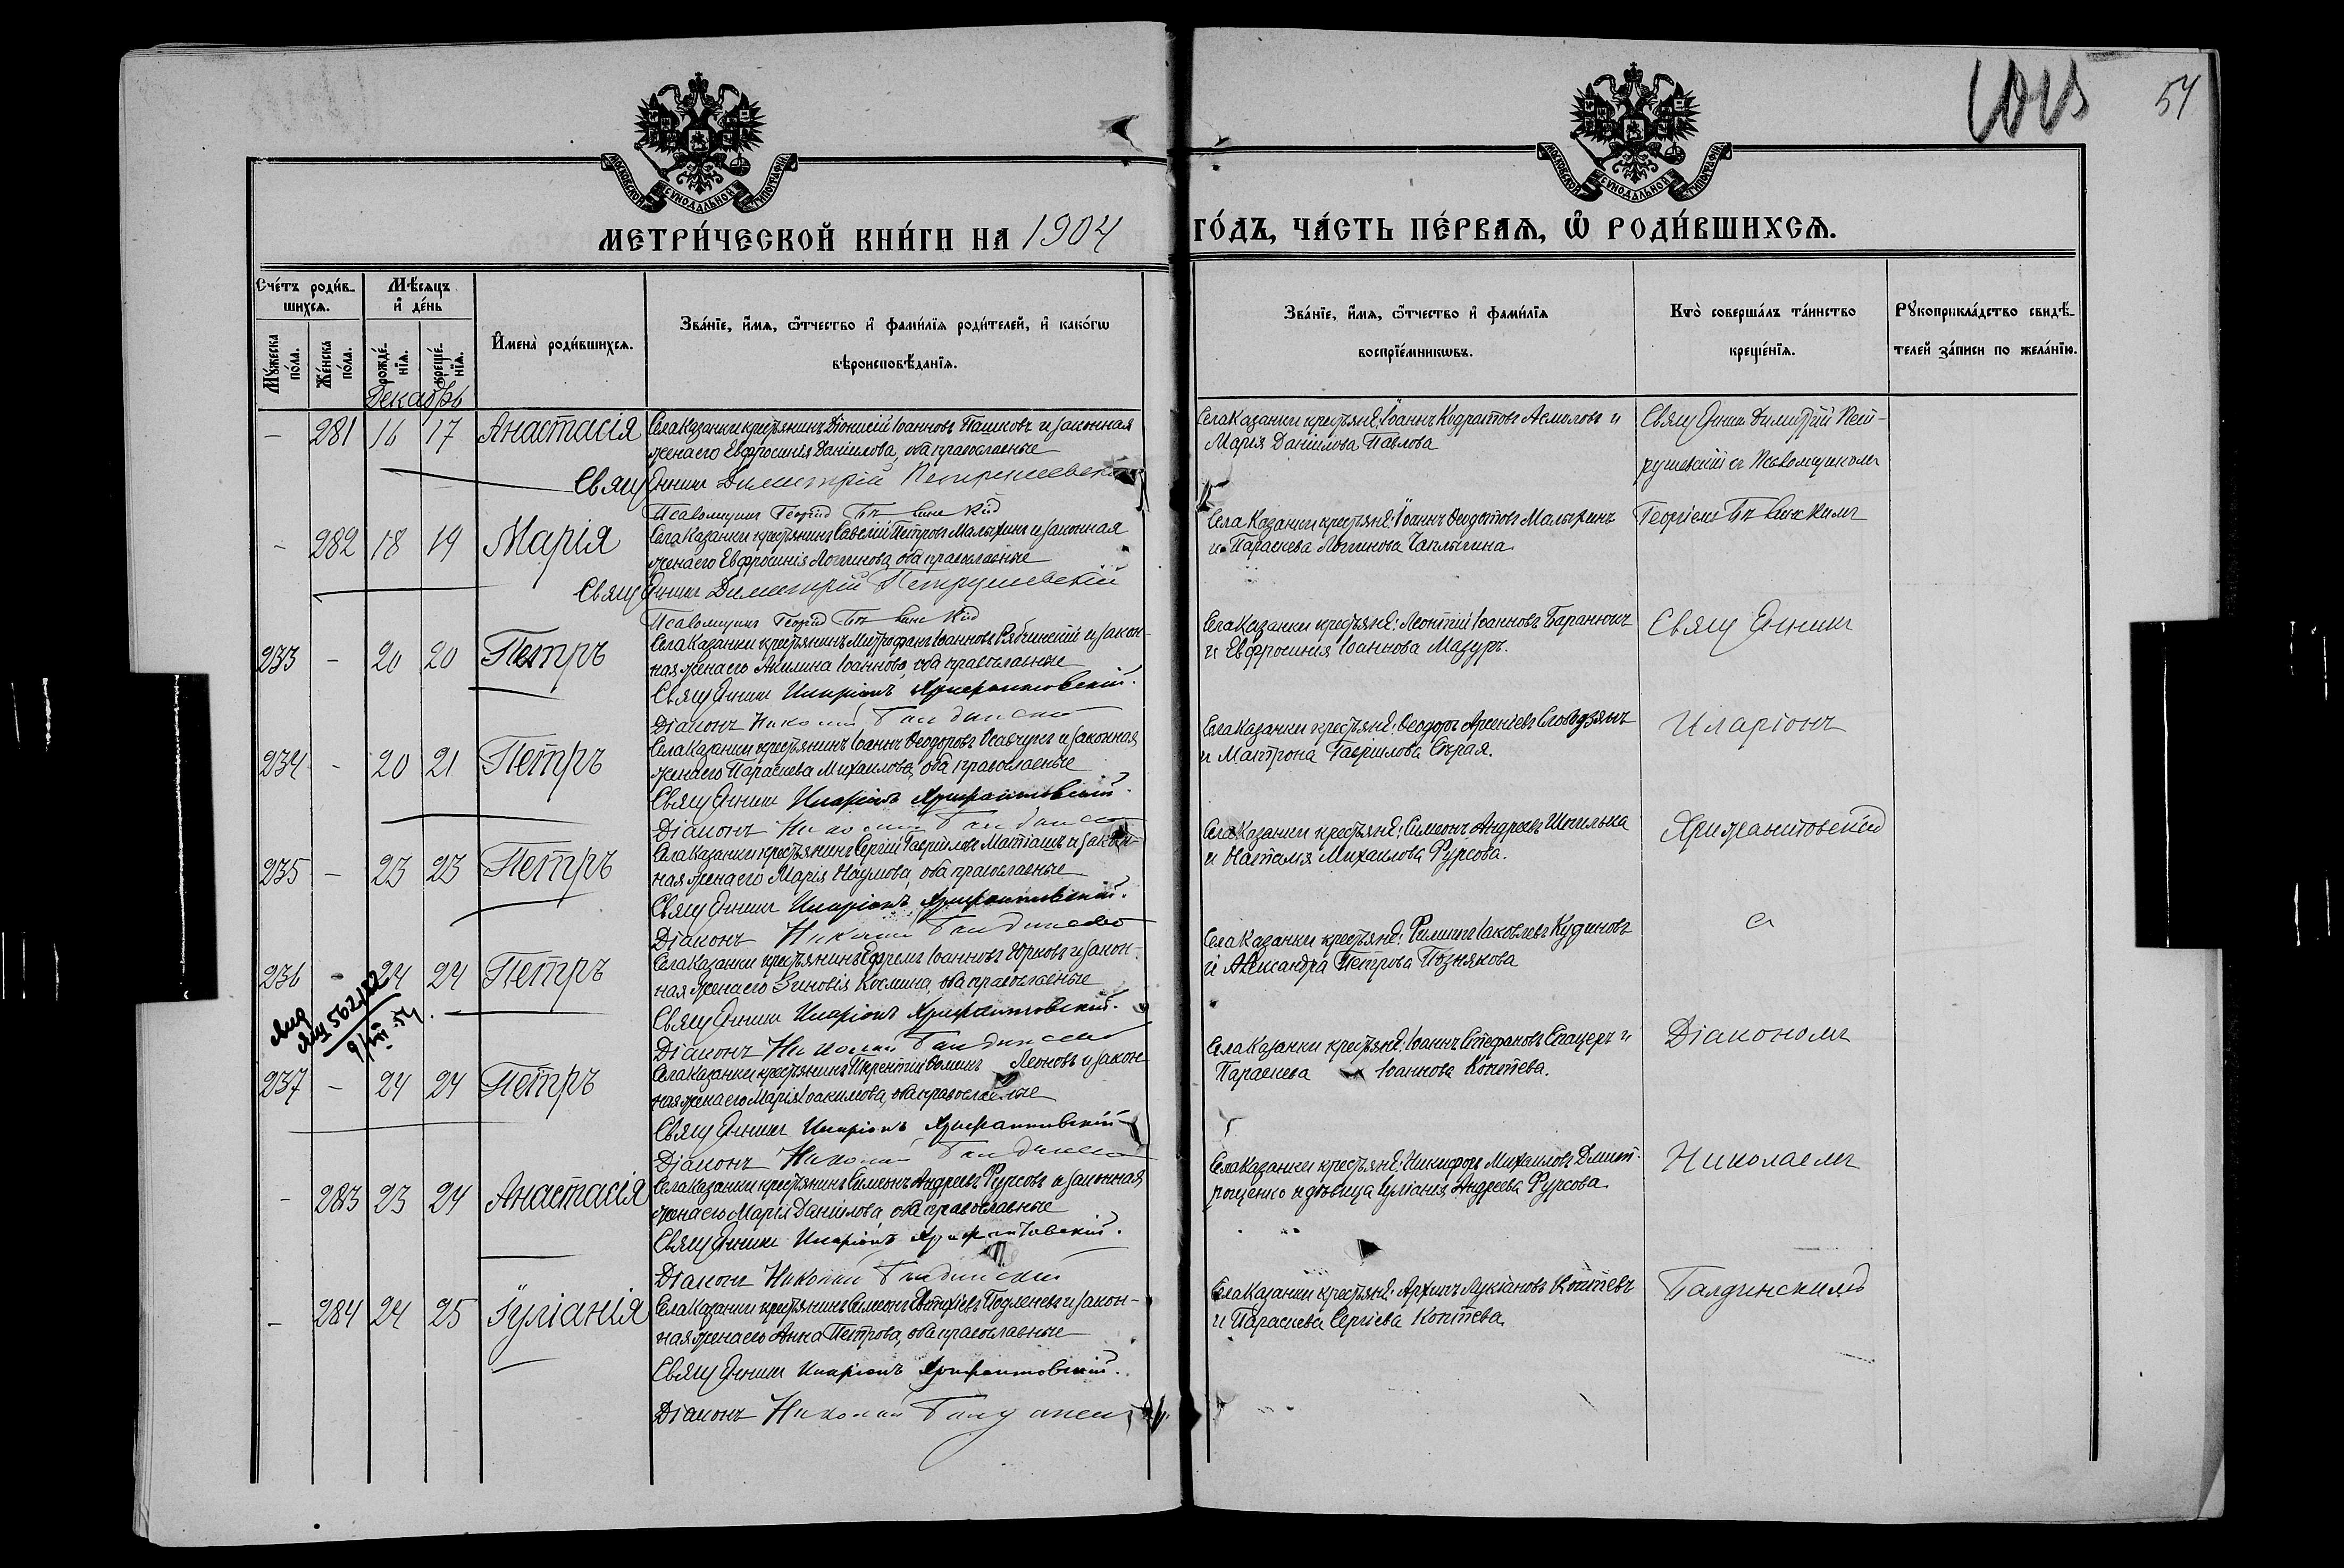 54
МОСКОВСКОЙ СѴНОДАЛЬНОЙ ТИПОГРАФІИ
МОСКОВСКОЙ СѴНОДАЛЬНОЙ ТИПОГРАФІИ
МЕТРИ́ЧЕСКОЙ КНИ́ГИ НА 1904 ГО́ДЪ, ЧА́СТЬ ПЕ́РВАѦ, Ѡ҆ РОДИ́ВШИХСѦ.
Сче́тъ роди́в-
шихсѧ.
Мꙋ́жеска по́ла.
Же́нска по́ла.
Мѣ́сѧцъ
и҆ де́нь
рожде́-
нїѧ.
креще́-
нїѧ.
И҆мена̀ роди́вшихсѧ.
Зва́нїе, и҆́мѧ, ѻ҆́тчество и҆ фами́лїѧ роди́телей, и҆ како́гѡ
вѣроисповѣ́данїѧ.
Зва́нїе, и҆́мѧ, ѻ҆́тчество и҆ фами́лїѧ
воспрїе́мникѡвъ.
Кто̀ соверша́лъ та́инство
креще́нїѧ.
Рꙋкоприкла́дство свидѣ́-
телей за́писи по жела́нїю.
Декабрь
- 281 16 17 Анастасія
Села Казанки крестьянинъ Діонисій Іоанновъ Пашковъ и законная
жена его Евфросинія Даніилова, оба православные
Священникъ Димитрій Петрушевскій
Псаломщикъ Георгій
Села Казанки крестьяне: Іоаннъ Кодратовъ Асмоловъ и
Марія Даніилова Павлова
Священник Димитрій Пет-
рушевскій съ Псаломщикомъ
- 282 18 19 Марія
Села Казанки крестьянинъ Савелій Петровъ Малыхинъ и законная
жена его Евфросинія Логгинова, оба православные
Священникъ Димитрій Петрушевскій
Псаломщикъ Георгій
Села Казанки крестьяне: Іоаннъ Ѳеодотовъ Малыхинъ
и Параскева Логгинова Чаплыгина
Георгіемъ
233 - 20 20 Петръ
Села Казанки крестьянинъ Митрофанъ Іоанновъ Рябчинскій и закон-
ная жена его Акилина Іоаннова, оба православные
Священникъ Иларіонъ Хрисанѳовскій.
Діаконъ Николай Галдинскій
Села Казанки крестьяне: Леонтій Іоанновъ Баранюкъ
и Евфросинія Іоаннова Мазуръ.
Священникъ
234 - 20 21 Петръ
Села Казанки крестьянинъ Іоаннъ Ѳеодоровъ Осавчукъ и законная
жена его Параскева Михаилова, оба православные
Священникъ Иларіонъ
Діаконъ Николай Галдинскій
Села Казанки крестьяне: Ѳеодоръ Арсеніевъ
и Матрона Гавриилова Сѣрая.
Иларіонъ
235 - 23 23 Петръ
Села Казанки крестьянинъ Сергій Гавріиловъ Матіашъ и закон-
ная жена его Марія Наумова, оба православные
Священникъ Иларіонъ
Діаконъ Николай Галдинскій
Села Казанки крестьяне: Симеонъ Андреевъ
и Наталія Михаилова Фурсова.
236 - 24 24 Петръ
Села Казанки крестьянинъ Ефремъ Іоанновъ Юрковъ и закон-
ная жена его Зиновія Космина, оба православные
Священникъ Иларіонъ
Діаконъ Николай Галдинскій
Села Казанки крестьяне: Филиппъ Іаковлевъ Кудиновъ
и Александра Петрова Познякова
съ
237 - 24 24 Петръ
Села Казанки крестьянинъ Терентій Ѳоминъ Леоновъ и закон-
ная жена его Марія Іоакимова, оба православные
Священникъ Иларіонъ
Діаконъ Николай Галдинскій
Села Казанки крестьяне: Іоаннъ Стефановъ и
Параскева Іоаннова Коптева.
Діакономъ
- 283 23 24 Анастасія
Села Казанки крестьянинъ Симеонъ Андреевъ Фурсовъ и законная
жена его Марія Даніилова, оба православные
Священникъ Иларіонъ
Діаконъ Николай Галдинскій
Села Казанки крестьяне: Никифоръ Михаиловъ Дмит-
рощенко и дѣвица Іуліанія Андреева Фурсова.
Николаемъ
- 284 24 25 Іуліанія
Села Казанки крестьянинъ Симеонъ и закон-
ная жена его Анна Петрова, оба православные
Священникъ Иларіонъ
Діаконъ Николай
Села Казанки крестьяне: Архипъ Лукіановъ Коптевъ
и Параскева Сергіева Коптева.
Галдинскимъ